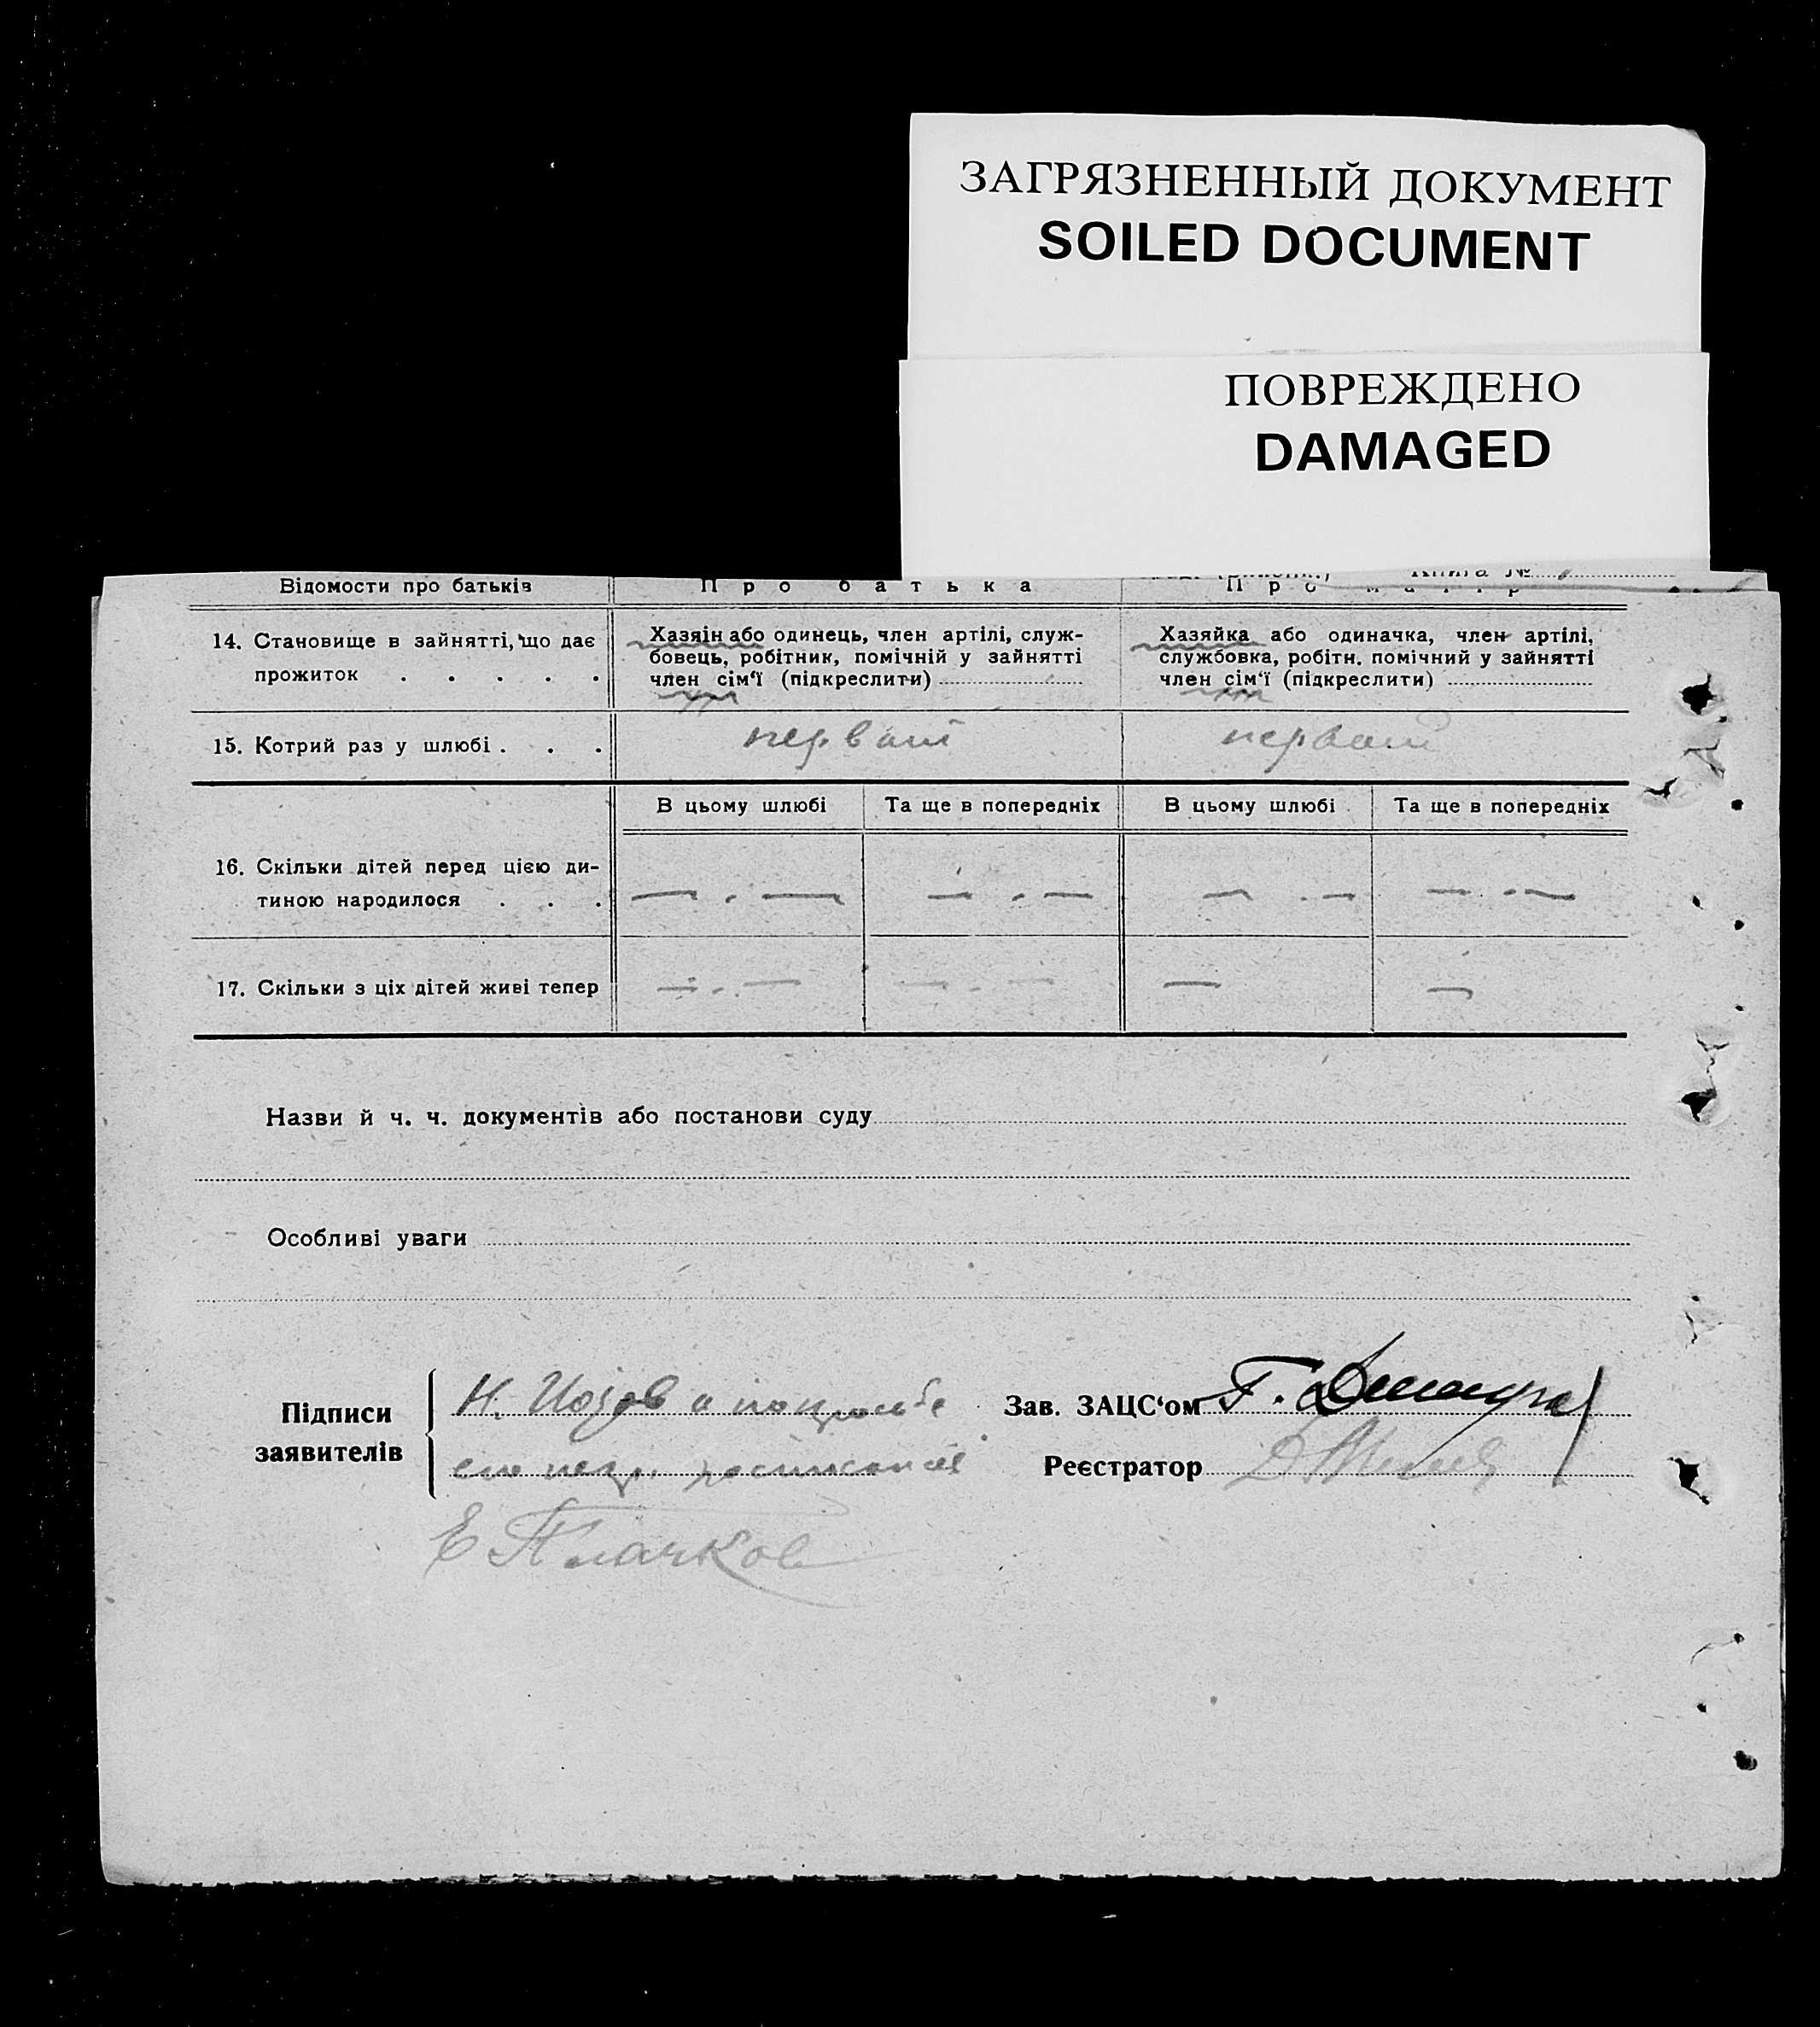 ЗАГРЯЗНЕННЫЙ ДОКУМЕНТ
SOILED DOCUMENT
ПОВРЕЖДЕНО
DAMAGED
Книга №
Відомости про батьків
Про батька
Про матір
14. Становище в зайнятті, що дає
прожиток . . . . .
Хазяїн або одинець, член артілі, служ-
бовець, робітник, помічній у зайнятті
член сім‘ї (підкреслити)
Хазяйка або одиначка, член артілі,
службовка, робітн. помічний у зайнятті
член сім‘ї (підкреслити)
15. Котрий раз у шлюбі . . .
первый
первый
В цьому шлюбі
Та ще в попередніх
В цьому шлюбі
Та ще в попередніх
16. Скільки дітей перед цією ди-
тиною народилося . . .
17. Скільки з ціх дітей живі тепер
Назви й ч. ч. документів або постанови суду
Особливі уваги
Підписи
заявителів
Н. а по просьбе
его негр. росписался
Е Плачков
Зав. ЗАЦС‘ом Г.
Реєстратор